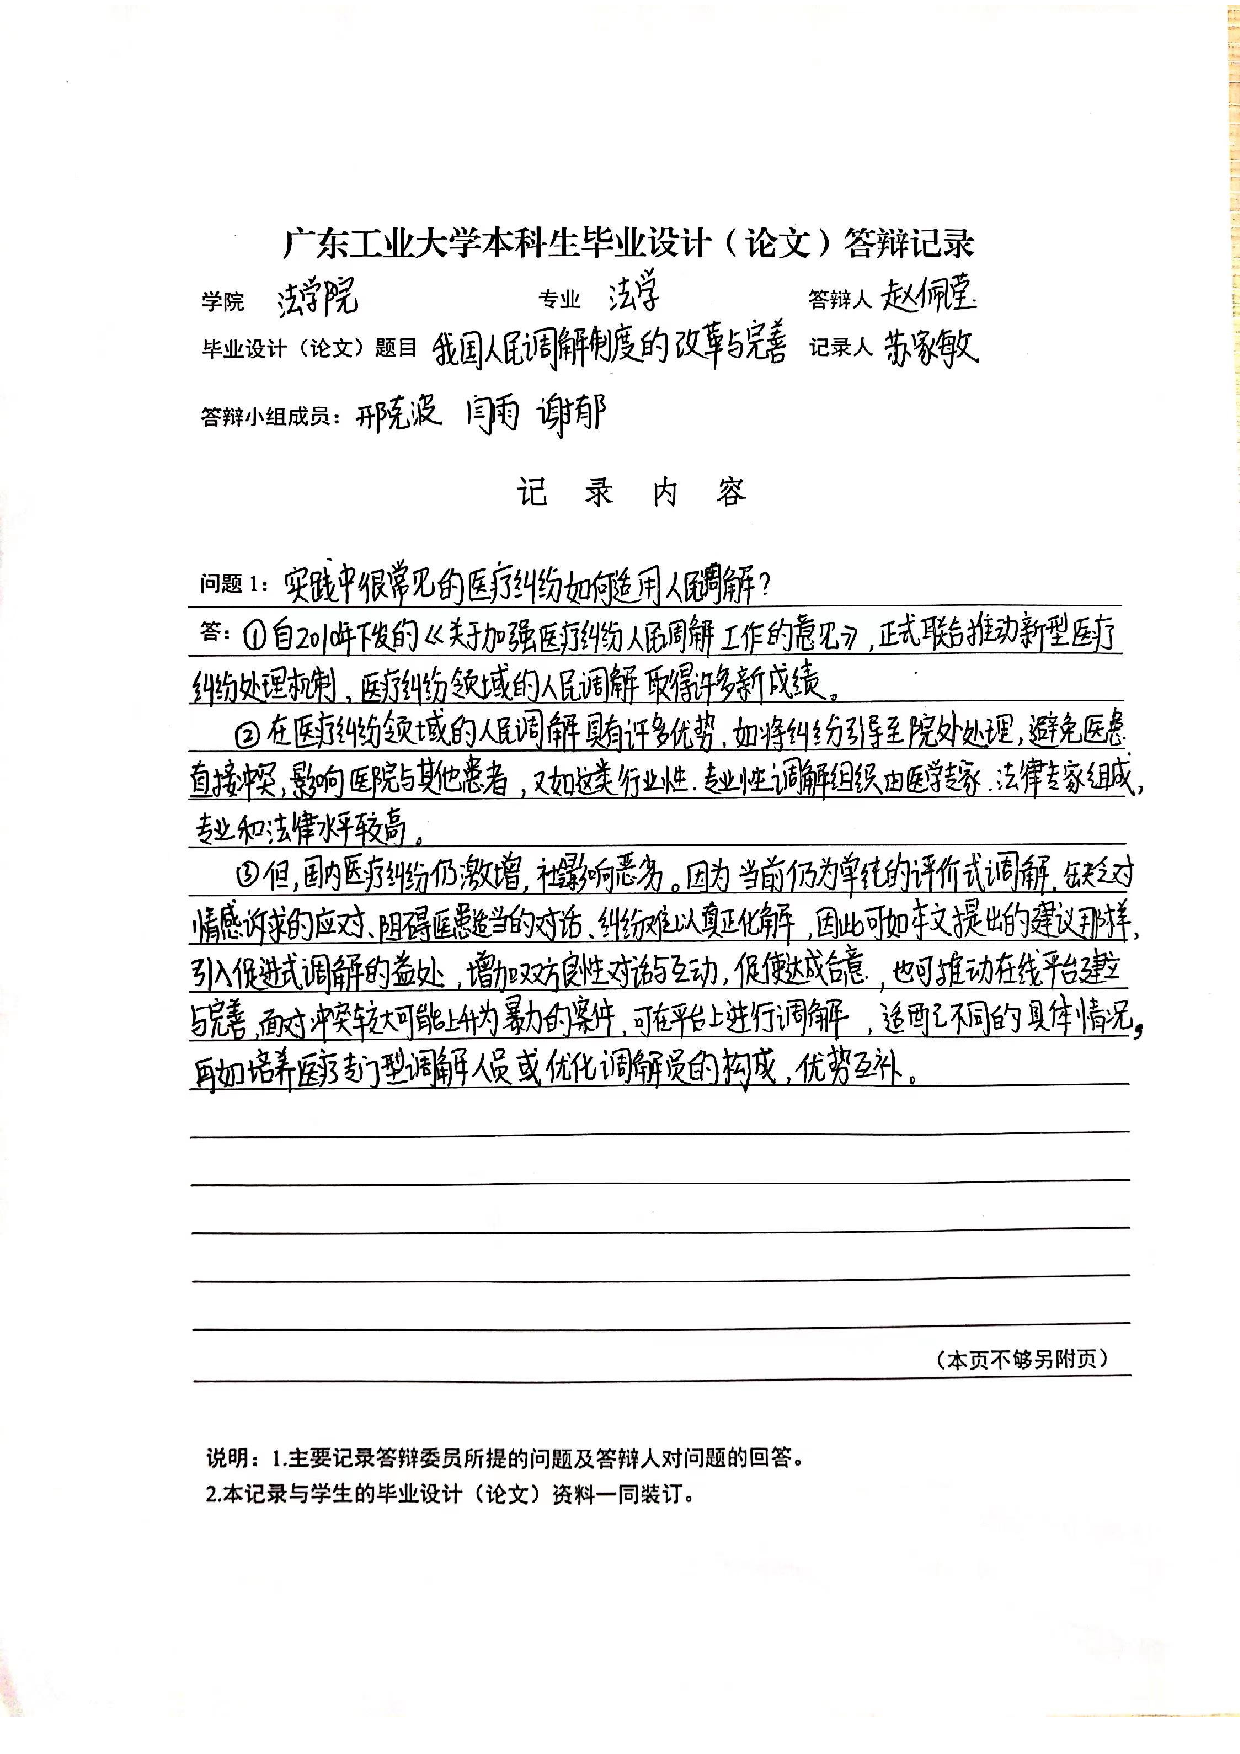 广东工业大学本科生毕业设计（论文）答辩记录
学院 法学院 专业 法学 答辩人 赵佩莹
毕业设计（论文）题目 我国人民调解制度的改革与完善 记录人 苏家敏
答辩小组成员：邢克波 闫雨 谢郁
记 录 内 容
问题 1：实践中很常见的医疗纠纷如何适用人民调解？
答：①自2010年下发的《关于加强医疗纠纷人民调解工作的意见》，正式联合推动新型医疗
纠纷处理机制，医疗纠纷领域的人民调解取得许多新成绩。
②在医疗纠纷领域的人民调解具有许多优势，如将纠纷引导至院外处理，避免医患
直接冲突，影响医院与其他患者，又如这类行业性、专业性调解组织由医学专家、法律专家组成，
专业和法律水平较高。
③但，国内医疗纠纷仍激增，社会影响恶劣。因为当前仍为单纯的评价式调解，缺乏对
情感诉求的应对、阻碍医患适当的对话、纠纷难以真正化解，因此可如本文提出的建议那样，
引入促进式调解的益处，增加双方良性对话与互动，促使达成合意，也可推动在线平台建立
与完善，面对冲突较大可能上升为暴力的案件，可在平台上进行调解，适配不同的具体情况，
再如培养医疗专门型调解人员或优化调解员的构成，优势互补。
（本页不够另附页）
说明：1.主要记录答辩委员所提的问题及答辩人对问题的回答。
2.本记录与学生的毕业设计（论文）资料一同装订。